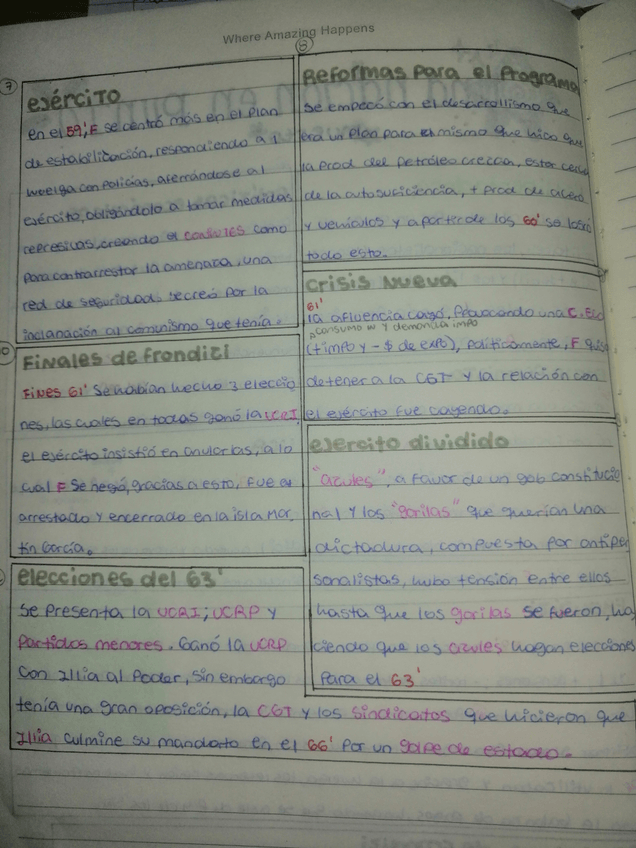 Where Amazing Happens
7
ejército
en el 59', F se centró más en el Plan
de estabilitación, respondiendo a l
huelga con policias, aferrándose al
ejército, obligándolo a tomar medidas
represivas, creando el CONINTES como
para contrarrestar la amenaza, una
red de seguridad. se creó por la
inclanación al comunismo que tenía.
8
Reformas para el Programa
se empezó con el desarrollismo que
era un plan para mismo que hizo que
la prod del petróleo crezca, estar cerca
de la autosuficiencia, + prod de acero
y vehículos y a partir de los 60' se logró
todo esto.
Crisis Nueva
61'
la afluencia cayó, provocando una C. Eco
consumo y demanda impo
(+impo y -$ de expo), políticamente, F quiso
detener a la CGT y la relación con
el ejército fue cayendo.
0
Finales de frondizi
Fines 61' Se habían hecho 3 eleccio
nes, las cuales en todas ganó la UCRI,
el ejército insistió en anularlas, a lo
cual F se negó, gracias a esto, fue
arrestado y encerrado en la isla Mar
tín García.
ejercito dividido
"azules", a favor de un gob constitucio
nal y los "gorilas" que querían una
dictadura, compuesta por antiper
sonalistas, hubo tensión entre ellos
hasta que los gorilas se fueron, ha
ciendo que los azules hagan elecciones
para el 63'
elecciones del 63'
Se presenta la UCRI; UCRP y
Partidos menores. Ganó la UCRP
con Illia al Poder, sin embargo
tenía una gran oposición, la CGT y los Sindicatos que hicieron que
Illia culmine su mandato en el 66' por un golpe de estado.